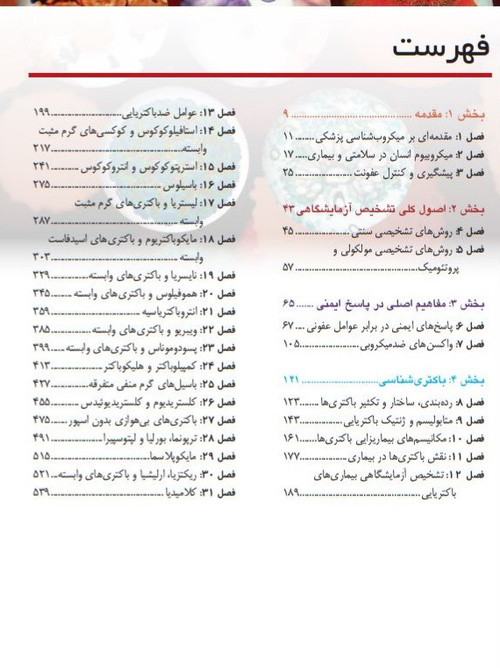 فهرست
بخش ۱: مقدمه ........ ۹
فصل ۱: مقدمه‌ای بر میکروب‌شناسی پزشکی ........ ۱۱
فصل ۲: میکروبیوم انسان در سلامتی و بیماری ........ ۱۷
فصل ۳: پیشگیری و کنترل عفونت ........ ۲۵
بخش ۲: اصول کلی تشخیص آزمایشگاهی ۴۳
فصل ۴: روش‌های تشخیصی سنتی ........ ۴۵
فصل ۵: روش‌های تشخیصی مولکولی و
پروتئومیک ........ ۵۷
بخش ۳: مفاهیم اصلی در پاسخ ایمنی ........ ۶۵
فصل ۶: پاسخ‌های ایمنی در برابر عوامل عفونی ........ ۶۷
فصل ۷: واکسن‌های ضدمیکروبی ........ ۱۰۵
بخش ۴: باکتری‌شناسی ........ ۱۲۱
فصل ۸: رده‌بندی، ساختار و تکثیر باکتری‌ها ........ ۱۲۳
فصل ۹: متابولیسم و ژنتیک باکتریایی ........ ۱۴۳
فصل ۱۰: مکانیسم‌های بیماریزایی باکتری‌ها ........ ۱۶۱
فصل ۱۱: نقش باکتری‌ها در بیماری ........ ۱۷۷
فصل ۱۲: تشخیص آزمایشگاهی بیماری‌های
باکتریایی ........ ۱۸۹
فصل ۱۳: عوامل ضدباکتریایی ........ ۱۹۹
فصل ۱۴: استافیلوکوکوس و کوکسی‌های گرم مثبت
وابسته ........ ۲۱۷
فصل ۱۵: استرپتوکوکوس و انتروکوکوس ........ ۲۴۱
فصل ۱۶: باسیلوس ........ ۲۷۵
فصل ۱۷: لیستریا و باکتری‌های گرم مثبت
وابسته ........ ۲۸۷
فصل ۱۸: مایکوباکتریوم و باکتری‌های اسیدفاست
وابسته ........ ۳۰۳
فصل ۱۹: نایسریا و باکتری‌های وابسته ........ ۳۲۹
فصل ۲۰: هموفیلوس و باکتری‌های وابسته ........ ۳۴۵
فصل ۲۱: انتروباکتریاسیه ........ ۳۵۹
فصل ۲۲: ویبریو و باکتری‌های وابسته ........ ۳۸۵
فصل ۲۳: پسودوموناس و باکتری‌های وابسته ........ ۳۹۹
فصل ۲۴: کمپیلوباکتر و هلیکوباکتر ........ ۴۱۳
فصل ۲۵: باسیل‌های گرم منفی متفرقه ........ ۴۲۷
فصل ۲۶: کلستریدیوم و کلستریدیوئیدس ........ ۴۵۵
فصل ۲۷: باکتری‌های بی‌هوازی بدون اسپور ........ ۴۷۵
فصل ۲۸: ترپونما، بورلیا و لپتوسپیرا ........ ۴۹۱
فصل ۲۹: مایکوپلاسما ........ ۵۱۵
فصل ۳۰: ریکتزیا، ارلیشیا و باکتری‌های وابسته ........ ۵۲۱
فصل ۳۱: کلامیدیا ........ ۵۳۹